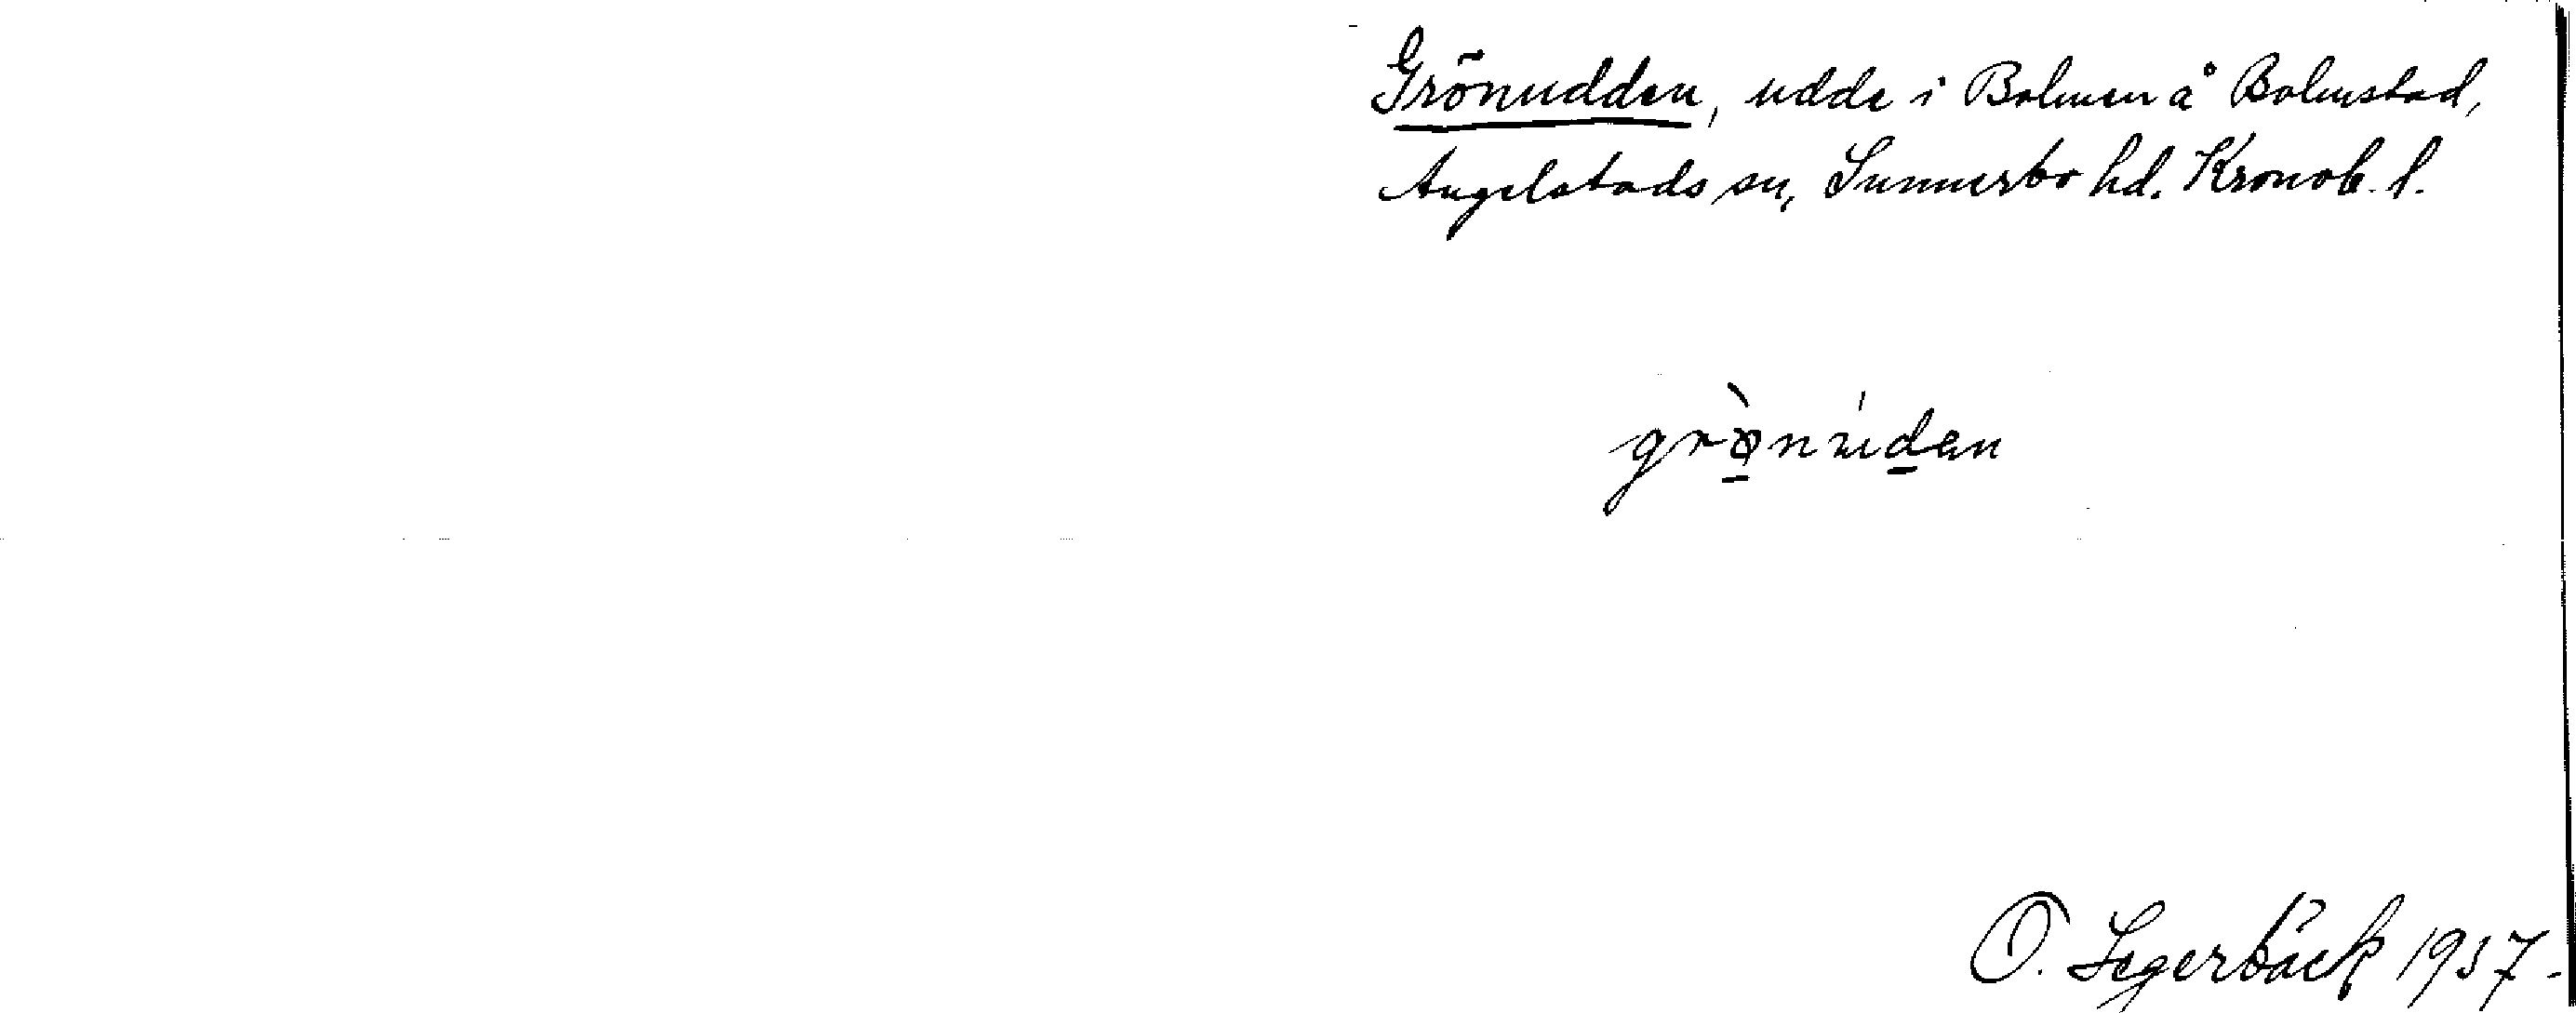 Grönudden, udde i Bolmen å Bolmstad,
Angelstads sn, Sunnerbo hd. Kronob. l.
grø̠̀núd̠en
O. Segerbäck 1937.